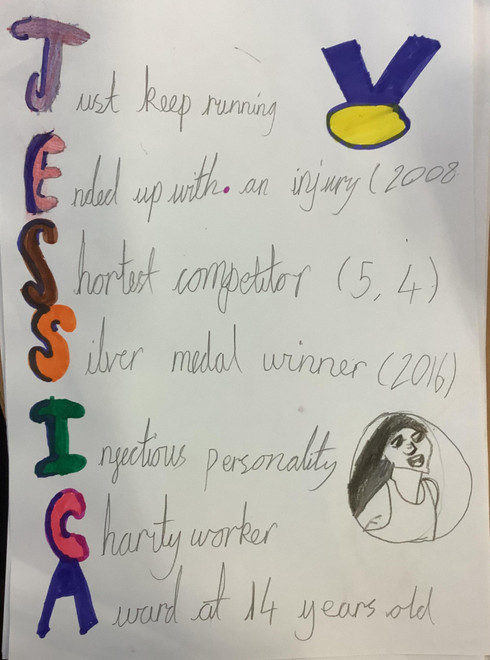 Just keep running
Ended up with. an injury (2008
Shortest competitor (5,4)
Silver medal winner (2016)
Infectious personality
Charity worker
Award at 14 years old